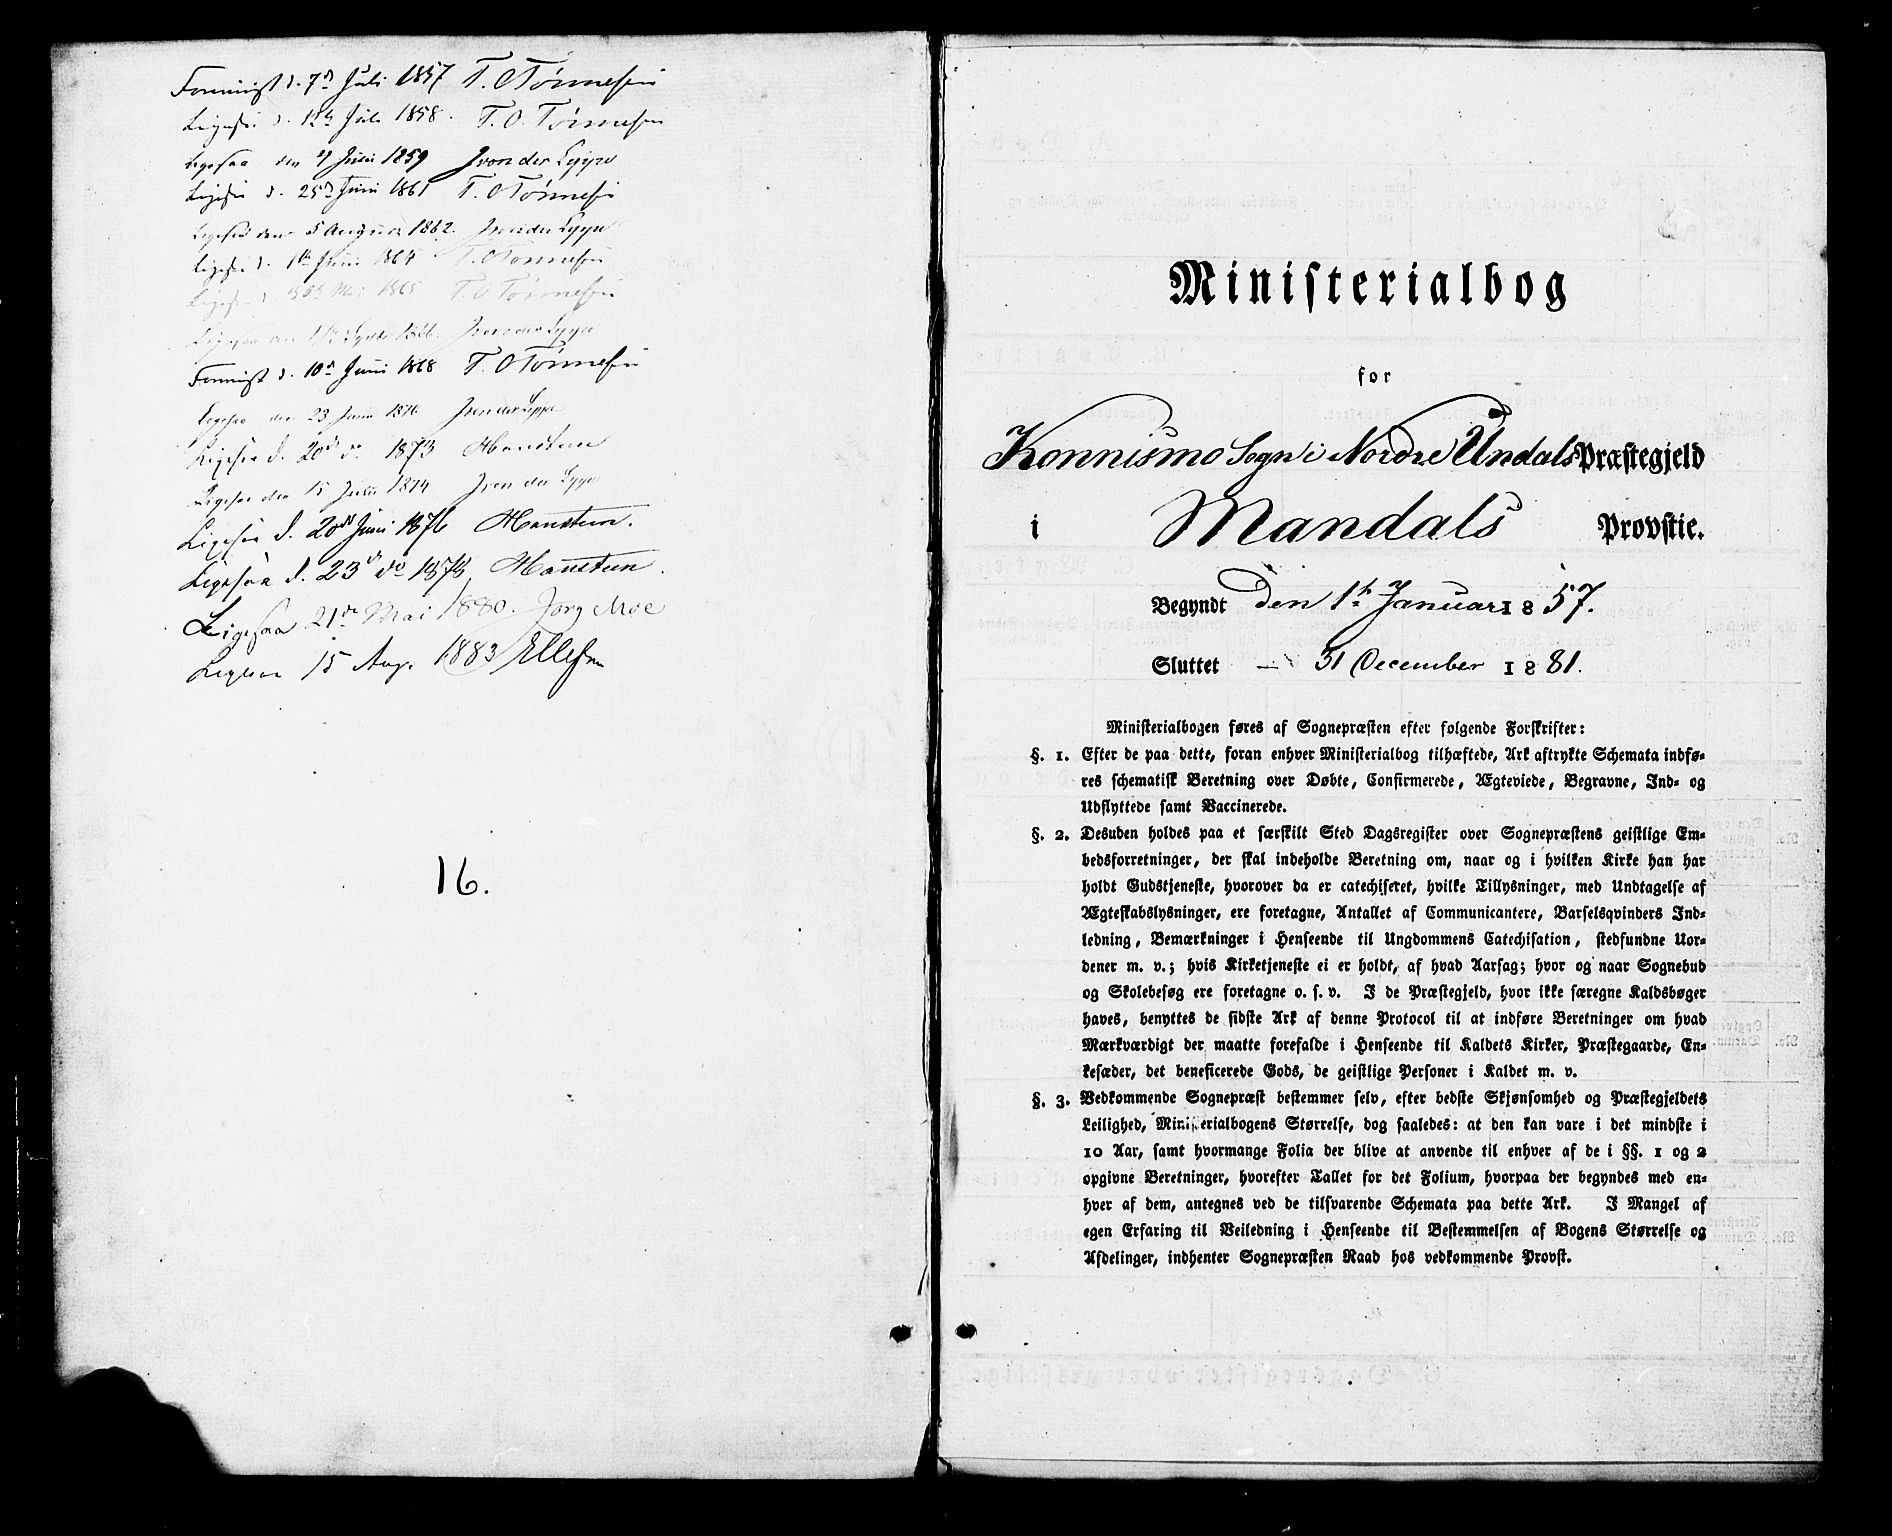 d. 7de Juli 1857 T. O Tønnesen
d. 12te Juli 1858. T. O. Tønnesen
Ligesaa den Juli 1859 J von der Lippe
d. 25de Juni 1861 T. O Tønnesen
Ligesaa den 5 August 1862. J von der Lippe
d. 1864 T. O Tønnesen
d. 30te Mai 1865 T. O Tønnesen
Ligesaa den 1866. J von der Lippe
d. 10de Juni 1868 T. O Tønnesen
Ligesaa den 23 Juni 1870 J von der Lippe
Ligesaa d. 20de do 1873 Hansteen
Ligesaa den 15 Juli 1874 J von der Lippe
Ligesaa d. 20de Juni 1876 Hansteen.
Ligesaa d. 23de do 1878 Hansteen.
Ligesaa 21de Mai 1880. Jørg Moe
Ligesaa 15 Aug. 1883 Ellefsen
16.
Ministerialbog
for
Konnismo Sogn i Nordre Undals Præstegjeld
i Mandals Provstie.
Begyndt Den 1ste Januar 1857.
Sluttet — 31 December 1881.
Ministerialbogen føres af Sognepræsten efter følgende Forskrifter:
§. 1. Efter de paa dette, foran enhver Ministerialbog tilhæftede, Ark aftrykte Schemata indfø-
res schematisk Beretning over Døbte, Confirmerede, Ægteviede, Begravne, Ind- og
Udflyttede samt Vaccinerede.
§. 2. Desuden holdes paa et særskilt Sted Dagsregister over Sognepræstens geistlige Em-
bedsforretninger, der skal indeholde Beretning om, naar og i hvilken Kirke han har
holdt Gudstjeneste, hvorover da er catechiseret, hvilke Tillysninger, med Undtagelse af
Ægteskabslysninger, ere foretagne, Antallet af Communicantere, Barselsqvinders Ind-
ledning, Bemærkninger i Henseende til Ungdommens Catechisation, stedfundne Uor-
dener m. v.; hvis Kirketjeneste ei er holdt, af hvad Aarsag; hvor og naar Sognebud
og Skolebesøg ere foretagne o. s. v. I de Præstegjeld, hvor ikke særegne Kaldsbøger
haves, benyttes de sidste Ark af denne Protocol til at indføre Beretninger om hvad
Mærkværdigt der maatte forefalde i Henseende til Kaldets Kirker, Præstegaarde, En-
kesæder, det beneficerede Gods, de geistlige Personer i Kaldet m. v.
§. 3. Vedkommende Sognepræst bestemmer selv, efter bedste Skjønsomhed og Præstegjeldets
Leilighed, Ministerialbogens Størrelse, dog saaledes: at den kan vare i det mindste i
10 Aar, samt hvormange Folia der blive at anvende til enhver af de i §§. 1 og 2
opgivne Beretninger, hvorefter Tallet for det Folium, hvorpaa der begyndes med en-
hver af dem, antegnes ved de tilsvarende Schemata paa dette Ark. I Mangel af
egen Erfaring til Veiledning i Henseende til Bestemmelsen af Bogens Størrelse og
Afdelinger, indhenter Sognepræsten Raad hos vedkommende Provst.